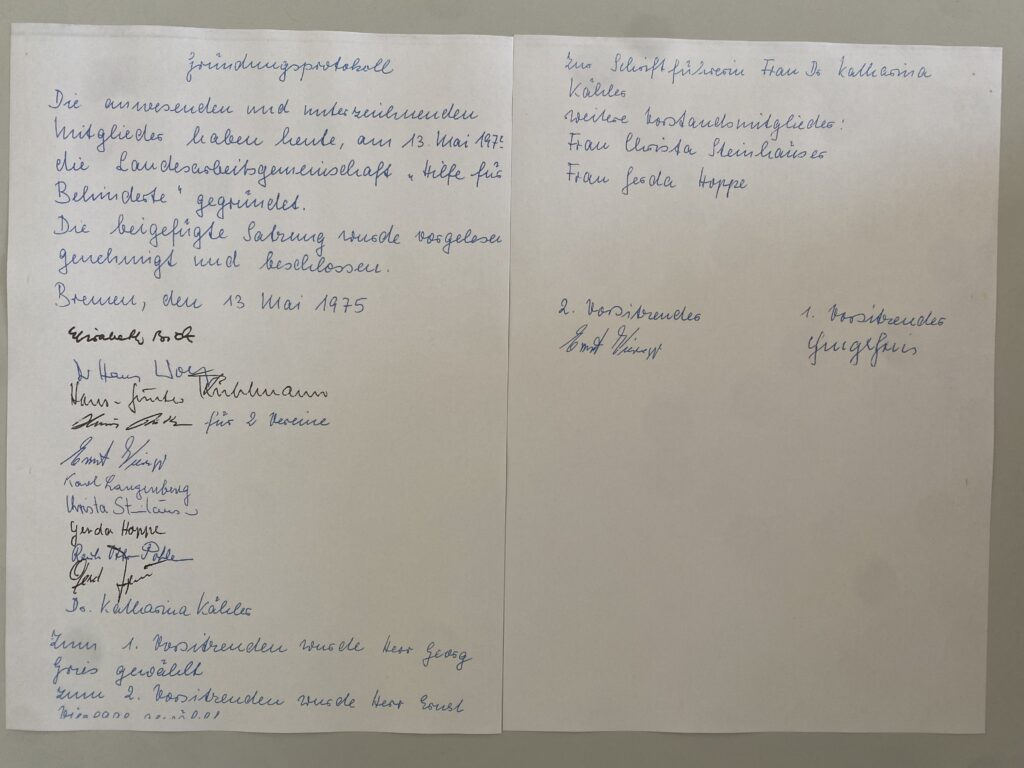 Gründungsprotokoll
Die anwesenden und unterzeichnenden
Mitglieder haben heute, am 13. Mai 1975
die Landesarbeitsgemeinschaft „Hilfe für
Behinderte" gegründet.
Die beigefügte Satzung wurde vorgelesen
genehmigt und beschlossen.
Bremen, den 13 Mai 1975
Elisabeth
Dr Hans
Hans-Günter Kühlmann
für 2 Vereine
Ernst
Karl Langenberg
Christa
Gerda Hoppe
Dr. Katharina Kähler
Zum 1. Vorsitzenden wurde Herr Georg
Gries gewählt
Zum 2. Vorsitzenden wurde Herr Ernst
Zur Schriftführerin Frau Dr Katharina
Kähler
weitere Vorstandsmitglieder:
Frau Christa Steinhäuser
Frau Gerda Hoppe
2. Vorsitzender
1. Vorsitzender
Ernst